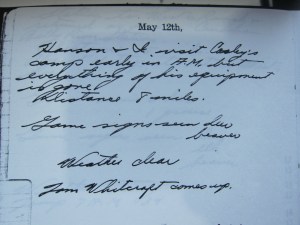 May 12th,
Hanson & I visit Cooley's
camp early in A.M. but
everything of his equipment
is gone
Distance 8 miles.
Game signs seen
beaver
Weather clear
Tom Whitcraft comes up.